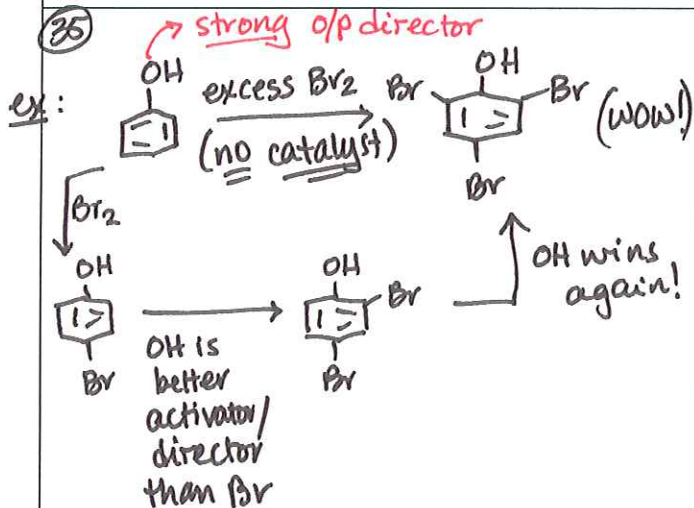 35
strong o/p director
ex:
OH
excess Br2
(no catalyst)
OH
Br
Br
Br
(wow!)
Br2
OH
Br
OH is
better
activator/
director
than Br
OH
Br
Br
OH wins
again!